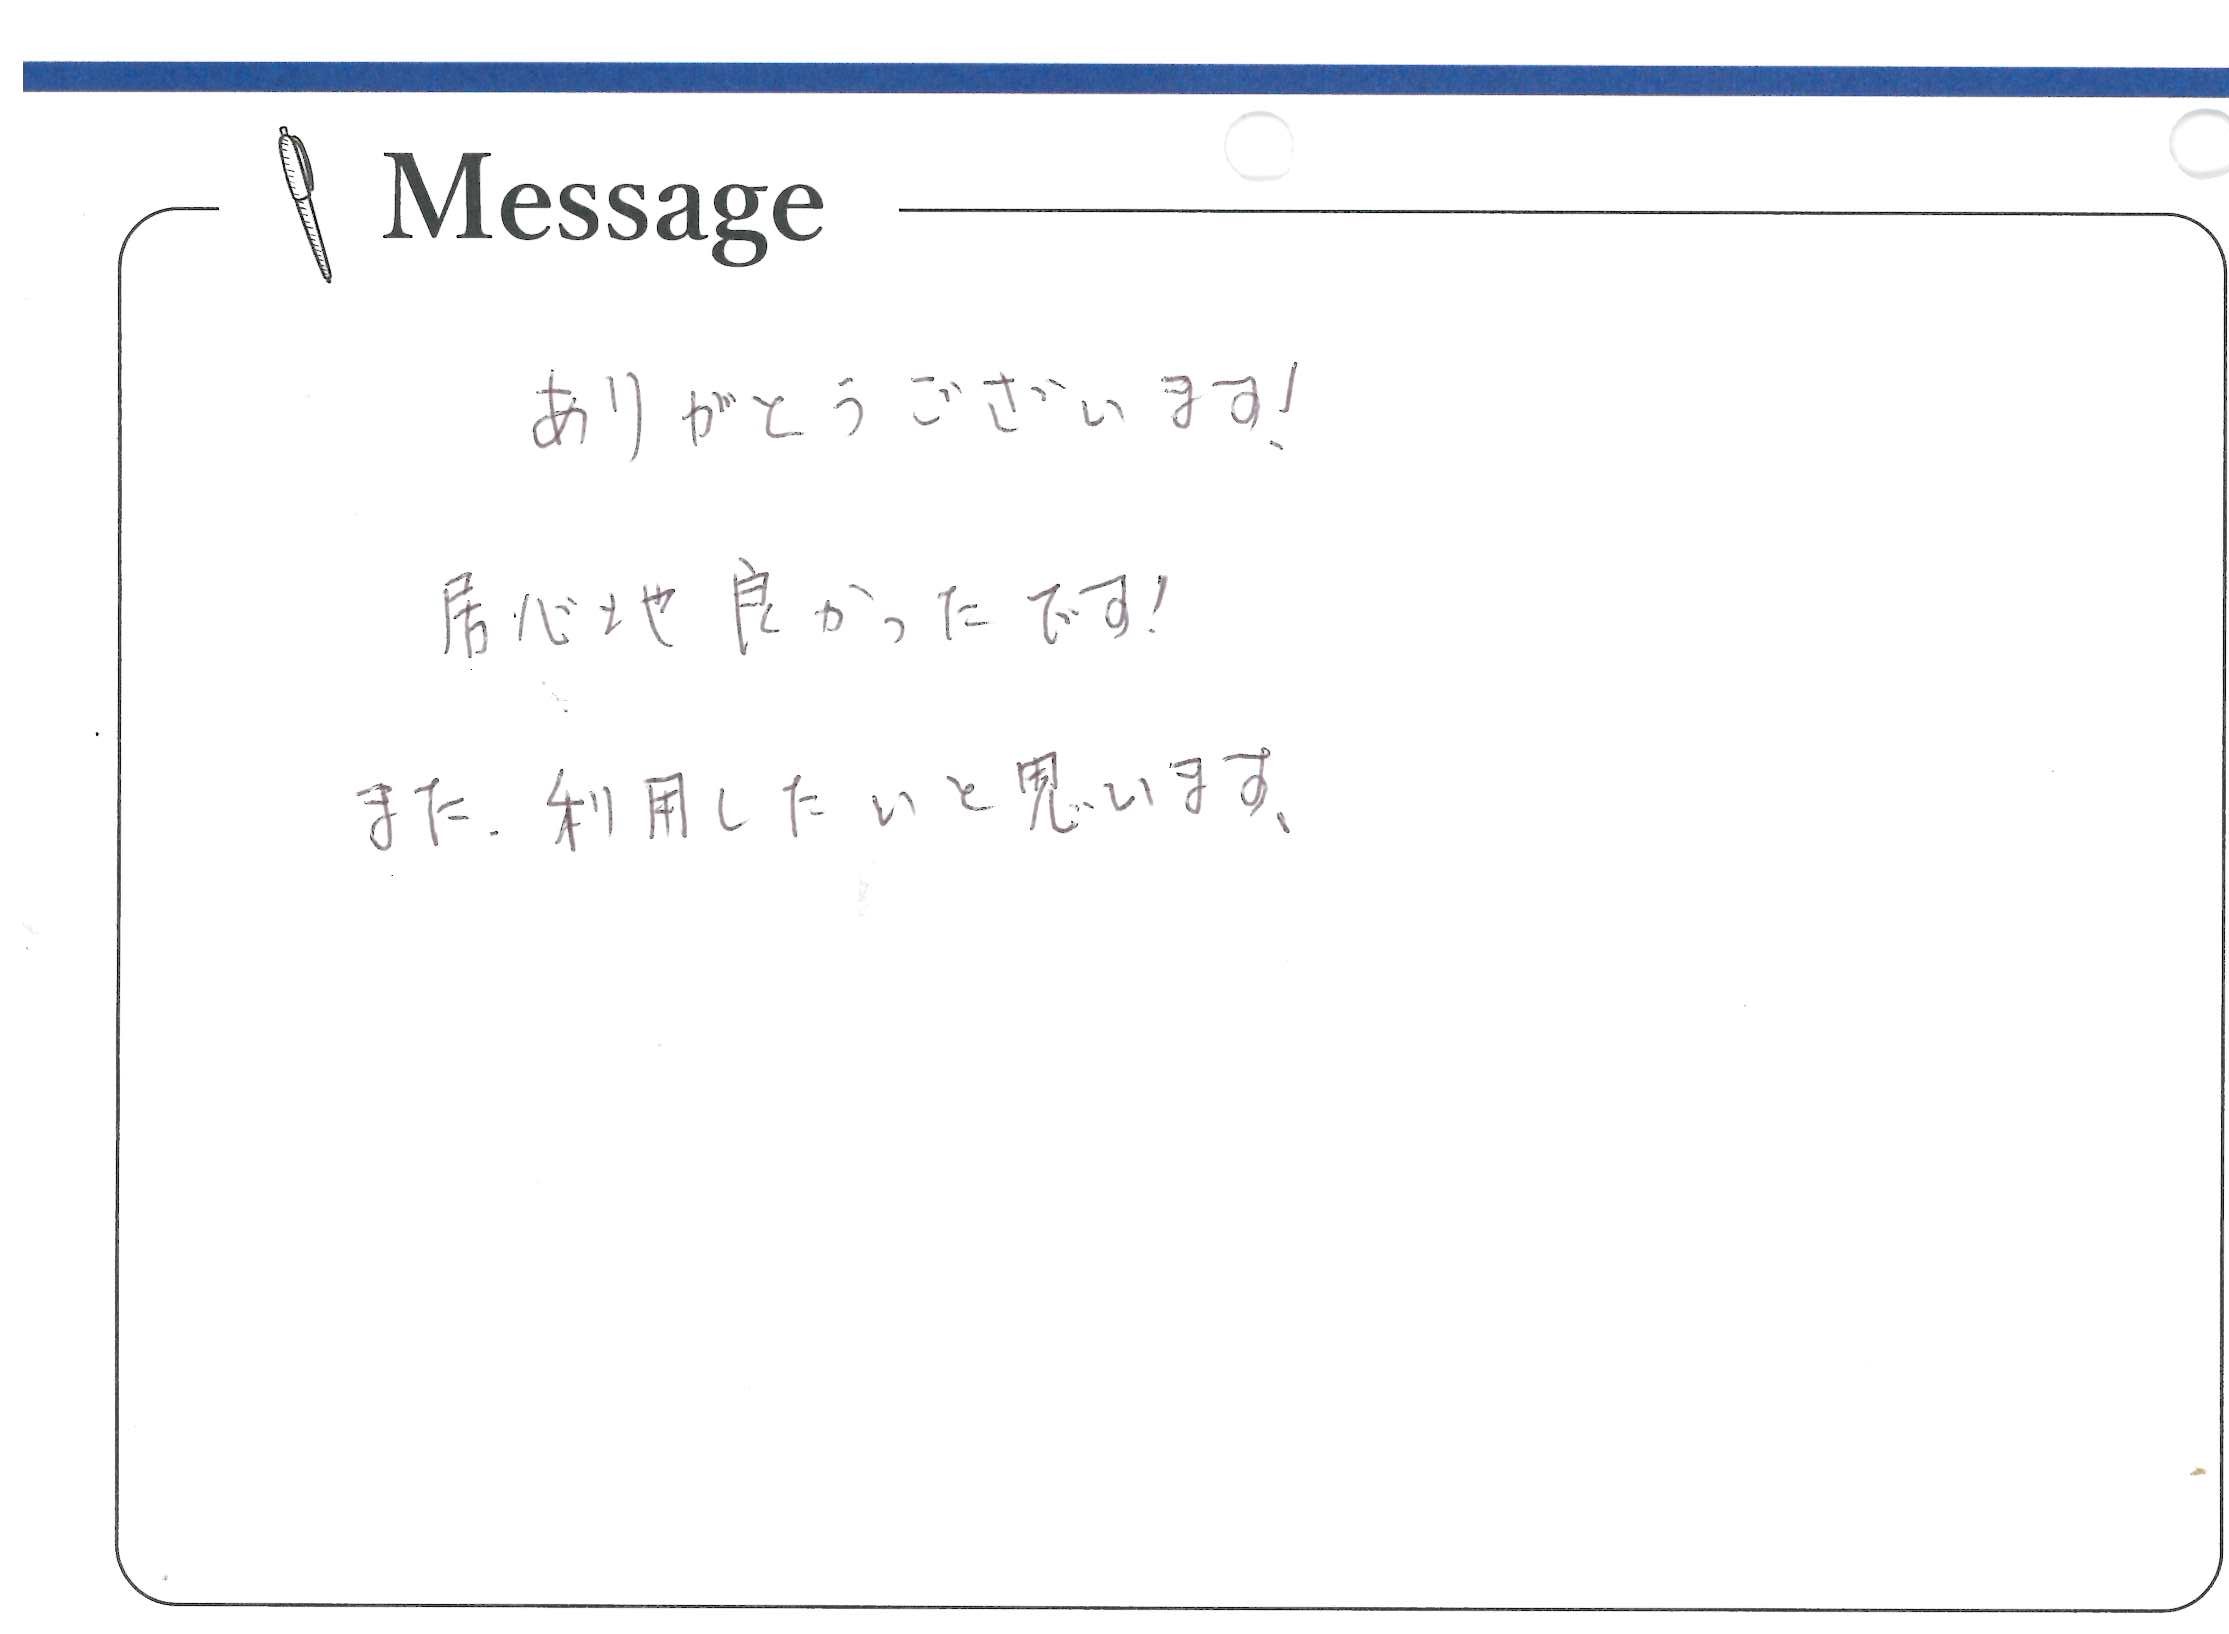 Message
ありがとうございます!
居心地良かったです!
また、利用したいと思います、